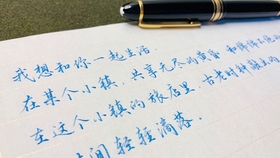 我想和你一起生活
在某个小镇，共享无尽的黄昏
在这个小镇的旅店里，古老时钟敲出的
时间轻轻滴落。